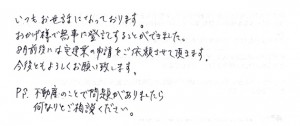 いつもお世話になっております。
おかげ様で無事に登記することができました。
8月前後には宅建業の申請をご依頼させて頂きます。
今後ともよろしくお願い致します。
P.P. 不動産のことで問題がありましたら
何なりとご相談ください。